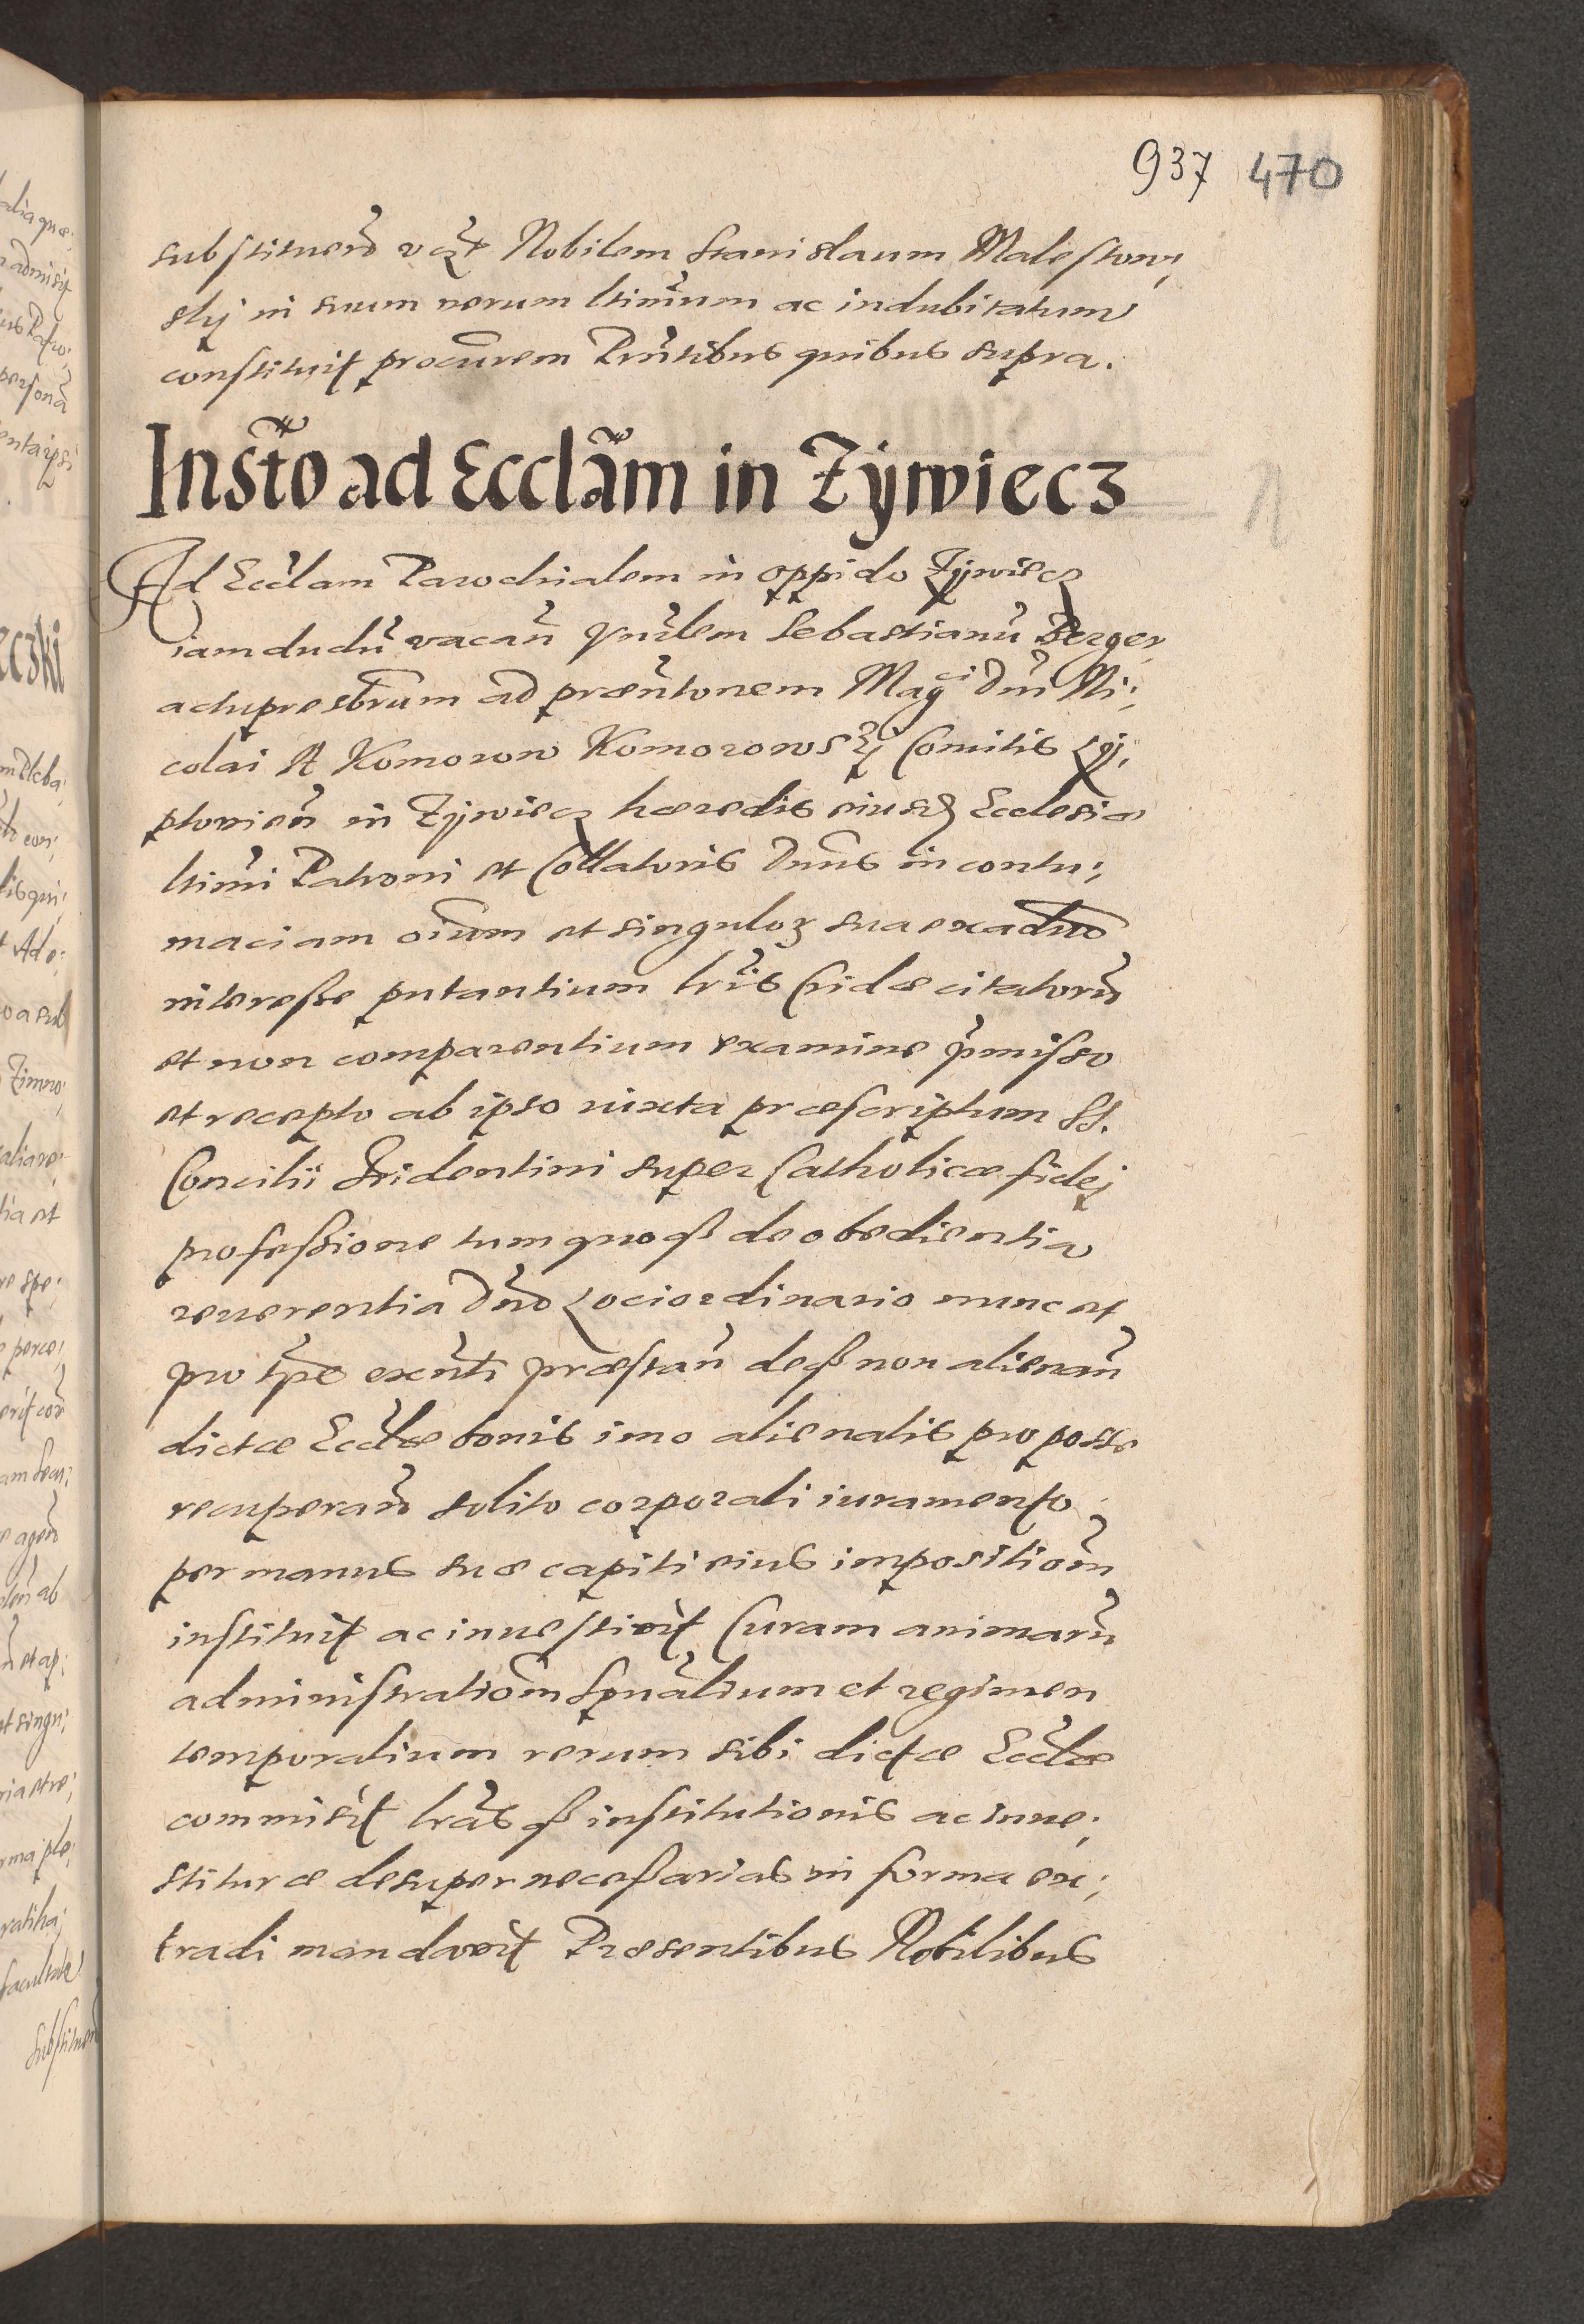 937 470
substituend̃ vćzt Nobilem Stanislaum Maleszow;
skij in suum verum ltimum ac indubitatum
constituit procurem Pntibus quibus supra.
Insto ad Ecclam in Zywiecz
Ad Ecclam Parochialem in oppido Zywiecz
iamdudũ vacañ Sebastianũ Berger
actupresbrum ad præntonem Magci Dni Ni;
colai A Komorow Komorowskij Comitis Lij;
ptovieñ in Zywiecz hæredis eiusd Ecclesiæ
ltimi Patroni et Collatoris Dnus in contu;
maciam oium et singuloꝝ sua exaduo
interesse putantium lris Cridæ citatorũ
et non comparentium examine pmisso
et recepto ab ipso iuxta præscriptum SS.
Concilii Tridentini super Catholicæ fidej
professione tum quoqꝫ de obedientia
reuerentia Dno Lociordinario nunc et
pro tpe exnti præstañ deqꝫ non alienañ
dictæ Ecclæ bonis imo alienatis pro posse
recuperand̃ solito corporali iuramento
per manus suæ capiti eius impositiom
instituit ac inuestivit Curam animarũ
administratiom Spualium et regimen
temporalium rerum sibi dictæ Ecclæ
commisit lras qꝫ institutionis ac inue;
stituræ desuper necessarias in forma ex;
tradi mandavit Præsentibus Nobilibus